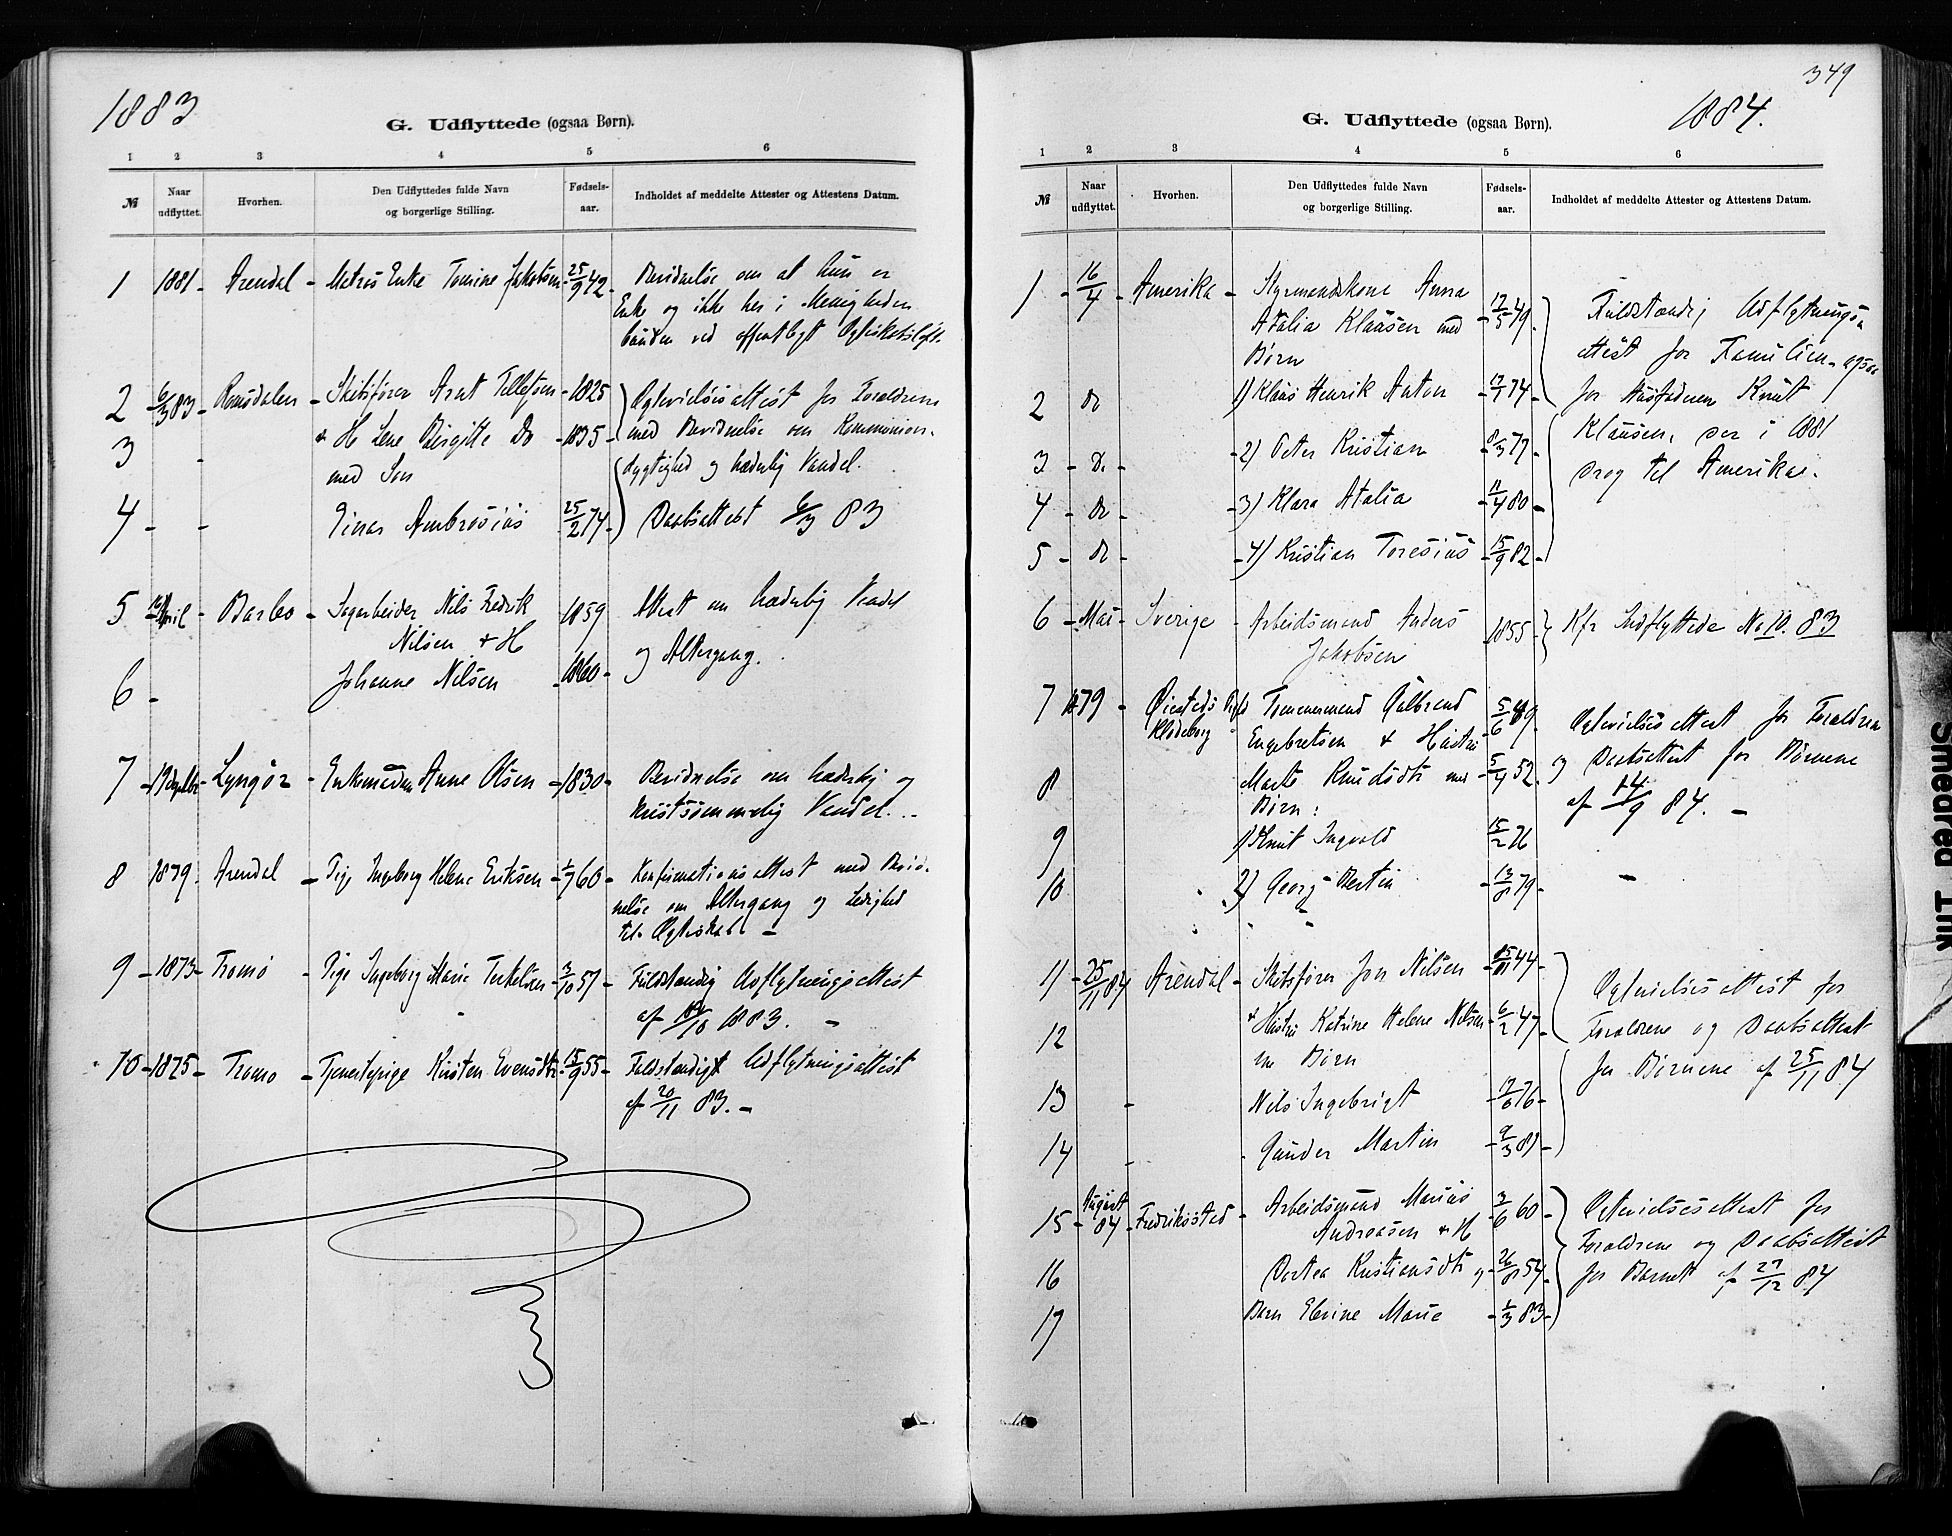 1883
G. Udflyttede (ogsaa Børn).
1 2 3 4 5 6
№ Naar udflyttet. Hvorhen. Den Udflyttedes fulde Navn og borgerlige Stilling. Fødsels-aar. Indholdet af meddelte Attester og Attestens Datum.
1 1881 - Arendal - Matros Enke Tomine Jakobsen 25/9 42 - Bevidnelse om at hun er
Enke og ikke her i Menigheden
bunden ved offentligt Ægteskabsløfte.
2 6/3 83 - Romsdalen - Skibsfører Arnt Tellefsen - 1825 Ægtevielsesattest for Forældrene
3 - + H Lene Birgitte Do - 1835 - med Bevidnelse om Kommunion-
med Søn dygtighed og hæderlig Vandel.
4 - - Einar Ambrosius 25/2 74 - Daabsattest 6/3 83
5 April - Barbo - Jagarbeider Nils Fredrik 1859 Attest om hæderlig Vandel
Nilsen + H og Altergang.
6 - Johanne Nilsen - 1860 -
7 - Lyngør - Enkemadam Anne Olsen - 1830 - Bevidnelse om hæderlig og
kristsømmelig Vandel. -
8 1879 Arendal - Pige Ingeborg Helene Eriksen 60 - Konfirmationsattest med Bevid-
nelse om Altergang og Ledighed
til Ægteskab. -
9 - 1873 - Tromø - Pige Ingeborg Marie Terkelsen 3/10 57 - Fuldstændig Udflytningsattest
af 10/10 1883. -
10 - 1875 - Tromø - Tjenestepige Kirsten Evensdtr. 15/9 55 - Fuldstændigt Udflytningsattest
af 20/11 83. -
349
1884.
G. Udflyttede (ogsaa Børn).
1 2 3 4 5 6
№ Naar udflyttet. Hvorhen. Den Udflyttedes fulde Navn og borgerlige Stilling. Fødsels-aar. Indholdet af meddelte Attester og Attestens Datum.
1 - 16/4 - Amerika - Styrmandskone Anna
Atalia Klausen med - 17/5 49. Fuldstændig Udflytnings-
Børn attest for Familien - ogsaa
2 Do 1) Klaus Henrik Anton - 17/7 74 - for Husfaderen Knut
3 - Do - - 2) Peter Kristian 8/3 77 - Klausen, der i 1881
drog til Amerika.
4 - Do - - 3) Klara Atalia 11/4 80 -
5 - Do - - 4) Kristian Toresius - 15/9 82 -
6 - Mai - Sverige - Arbeidsmand Anders 1855 Kfr Indflyttede No 10. 83
Jakobsen
7 1879 - Øiesteds
Klodeborg
Tømmermand Gulbrand 5/6 49.
Engebretsen + Hustru Ægtevielsesattest for Forældrene
8 Marte Knudsdtr med - 5/4 52. og Daabsattest for Børnene
Børn: af 14/9 84. -
9 1) Knut Ingvald 15/2 76
10 2) Georg Bertin - 13/8 79 - -
11 - 25/11 84 Arendal - Skibsfører Jon Nilsen 15/11 44 - Ægtevielsesattest for
12 + Hustru Katrine Helene Nilsen - 6/2 47 - Forældrene og Daabsattest
m Børn for Børnene af 25/11 84
13 - Nils Ingebrigt 76 -
14 - Gunder Martin - 9/3 81 -
15 - August 84 - Fredriksstad - Arbeidsmand Marius 3/6 60 - Ægtevielsesattest for
Andreasen + H Forældrene og Daabsattest
16 Dortea Kristiansdtr og 26/8 54 - for Barnet af 27/12 84
19 Barn Elevine Marie - 1/3 83 -
Snedrea Ink